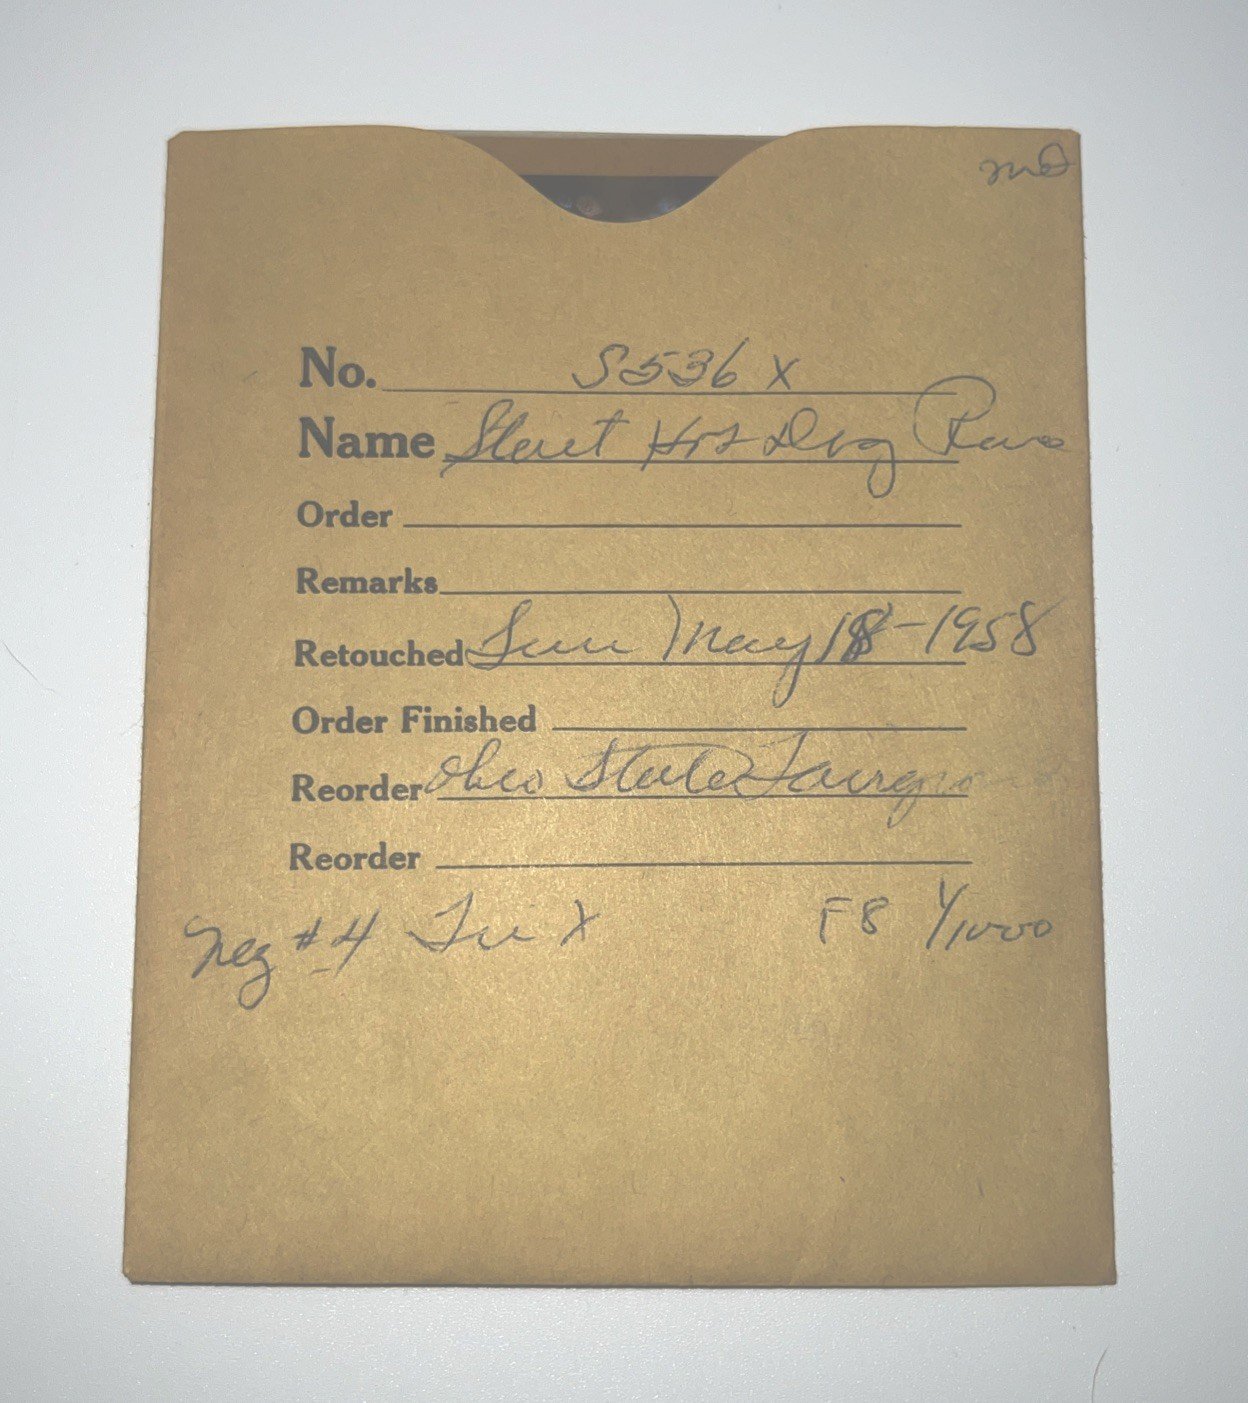 No. S536 X
Name Start Hot Dog Race
Order
Remarks
Retouched Sun May 18-1958
Order Finished
Reorder Ohio State Fairgro
Reorder
Neg #4 Tri X F8 1/1000